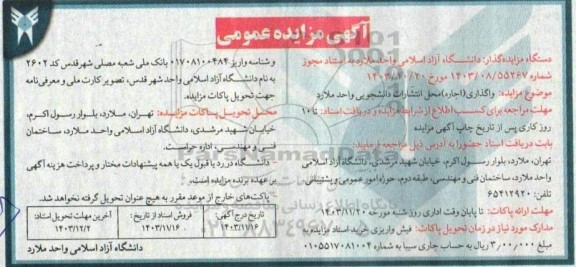 آگهی مزایده عمومی
دستگاه مزایده‌گذار: دانشگاه آزاد اسلامی واحد ملارد به استناد مجوز
شماره ۱۴۰۳/۰۸/۵۵۲۶۷ مورخ
موضوع مزایده: واگذاری(اجاره)محل انتشارات دانشجویی واحد ملارد
مهلت مراجعه برای کسب اطلاع از شرایط مزایده و دریافت اسناد: تا ۱۰
روز کاری پس از تاریخ چاپ آگهی مزایده
بابت دریافت اسناد حضورا به آدرس ذیل مراجعه فرمایید:
تهران، ملارد، بلوار رسول اکرم، خیابان شهید مرشدی، دانشگاه آزاد اسلامی
واحد ملارد، ساختمان فنی و مهندسی، طبقه دوم، حوزه امور عمومی و پشتیبانی
تلفن: ۶۵۴۱۲۹۲۰
مهلت ارائه پاکات: تا پایان وقت اداری روز شنبه مورخه ۱۴۰۳/۱۱/۲۰
مدارک مورد نیاز در زمان تحویل پاکات: فیش واریزی خرید اسناد مزایده به
مبلغ ۳٬۰۰۰٬۰۰۰ ریال به حساب جاری سیبا به شماره ۰۱۰۵۵۱۷۰۸۱۰۰۴
و شناسه واریز ۰۱۷۰۸۱۰۰۴۸۴ بانک ملی شعبه مصلی شهرقدس کد ۲۶۰۲
به نام دانشگاه آزاد اسلامی واحد شهر قدس، تصویر کارت ملی و معرفی‌نامه
جهت تحویل پاکات مزایده.
محل تحویل پاکات مزایده: تهران، ملارد، بلوار رسول اکرم،
خیابان شهید مرشدی، دانشگاه آزاد اسلامی واحد ملارد، ساختمان
فنی و مهندسی، اداره حراست.
دانشگاه در رد یا قبول یک یا همه پیشنهادات مختار و پرداخت هزینه آگهی
بر عهده برنده مزایده است.
پاکت‌های خارج از موعد مقرر به هیچ عنوان تحویل گرفته نخواهد شد.
تاریخ درج آگهی: ۱۴۰۳/۱۱/۱۶
فروش اسناد از تاریخ: ۱۴۰۳/۱۱/۱۶
آخرین مهلت تحویل اسناد: ۱۴۰۳/۱۲/۲
دانشگاه آزاد اسلامی واحد ملارد